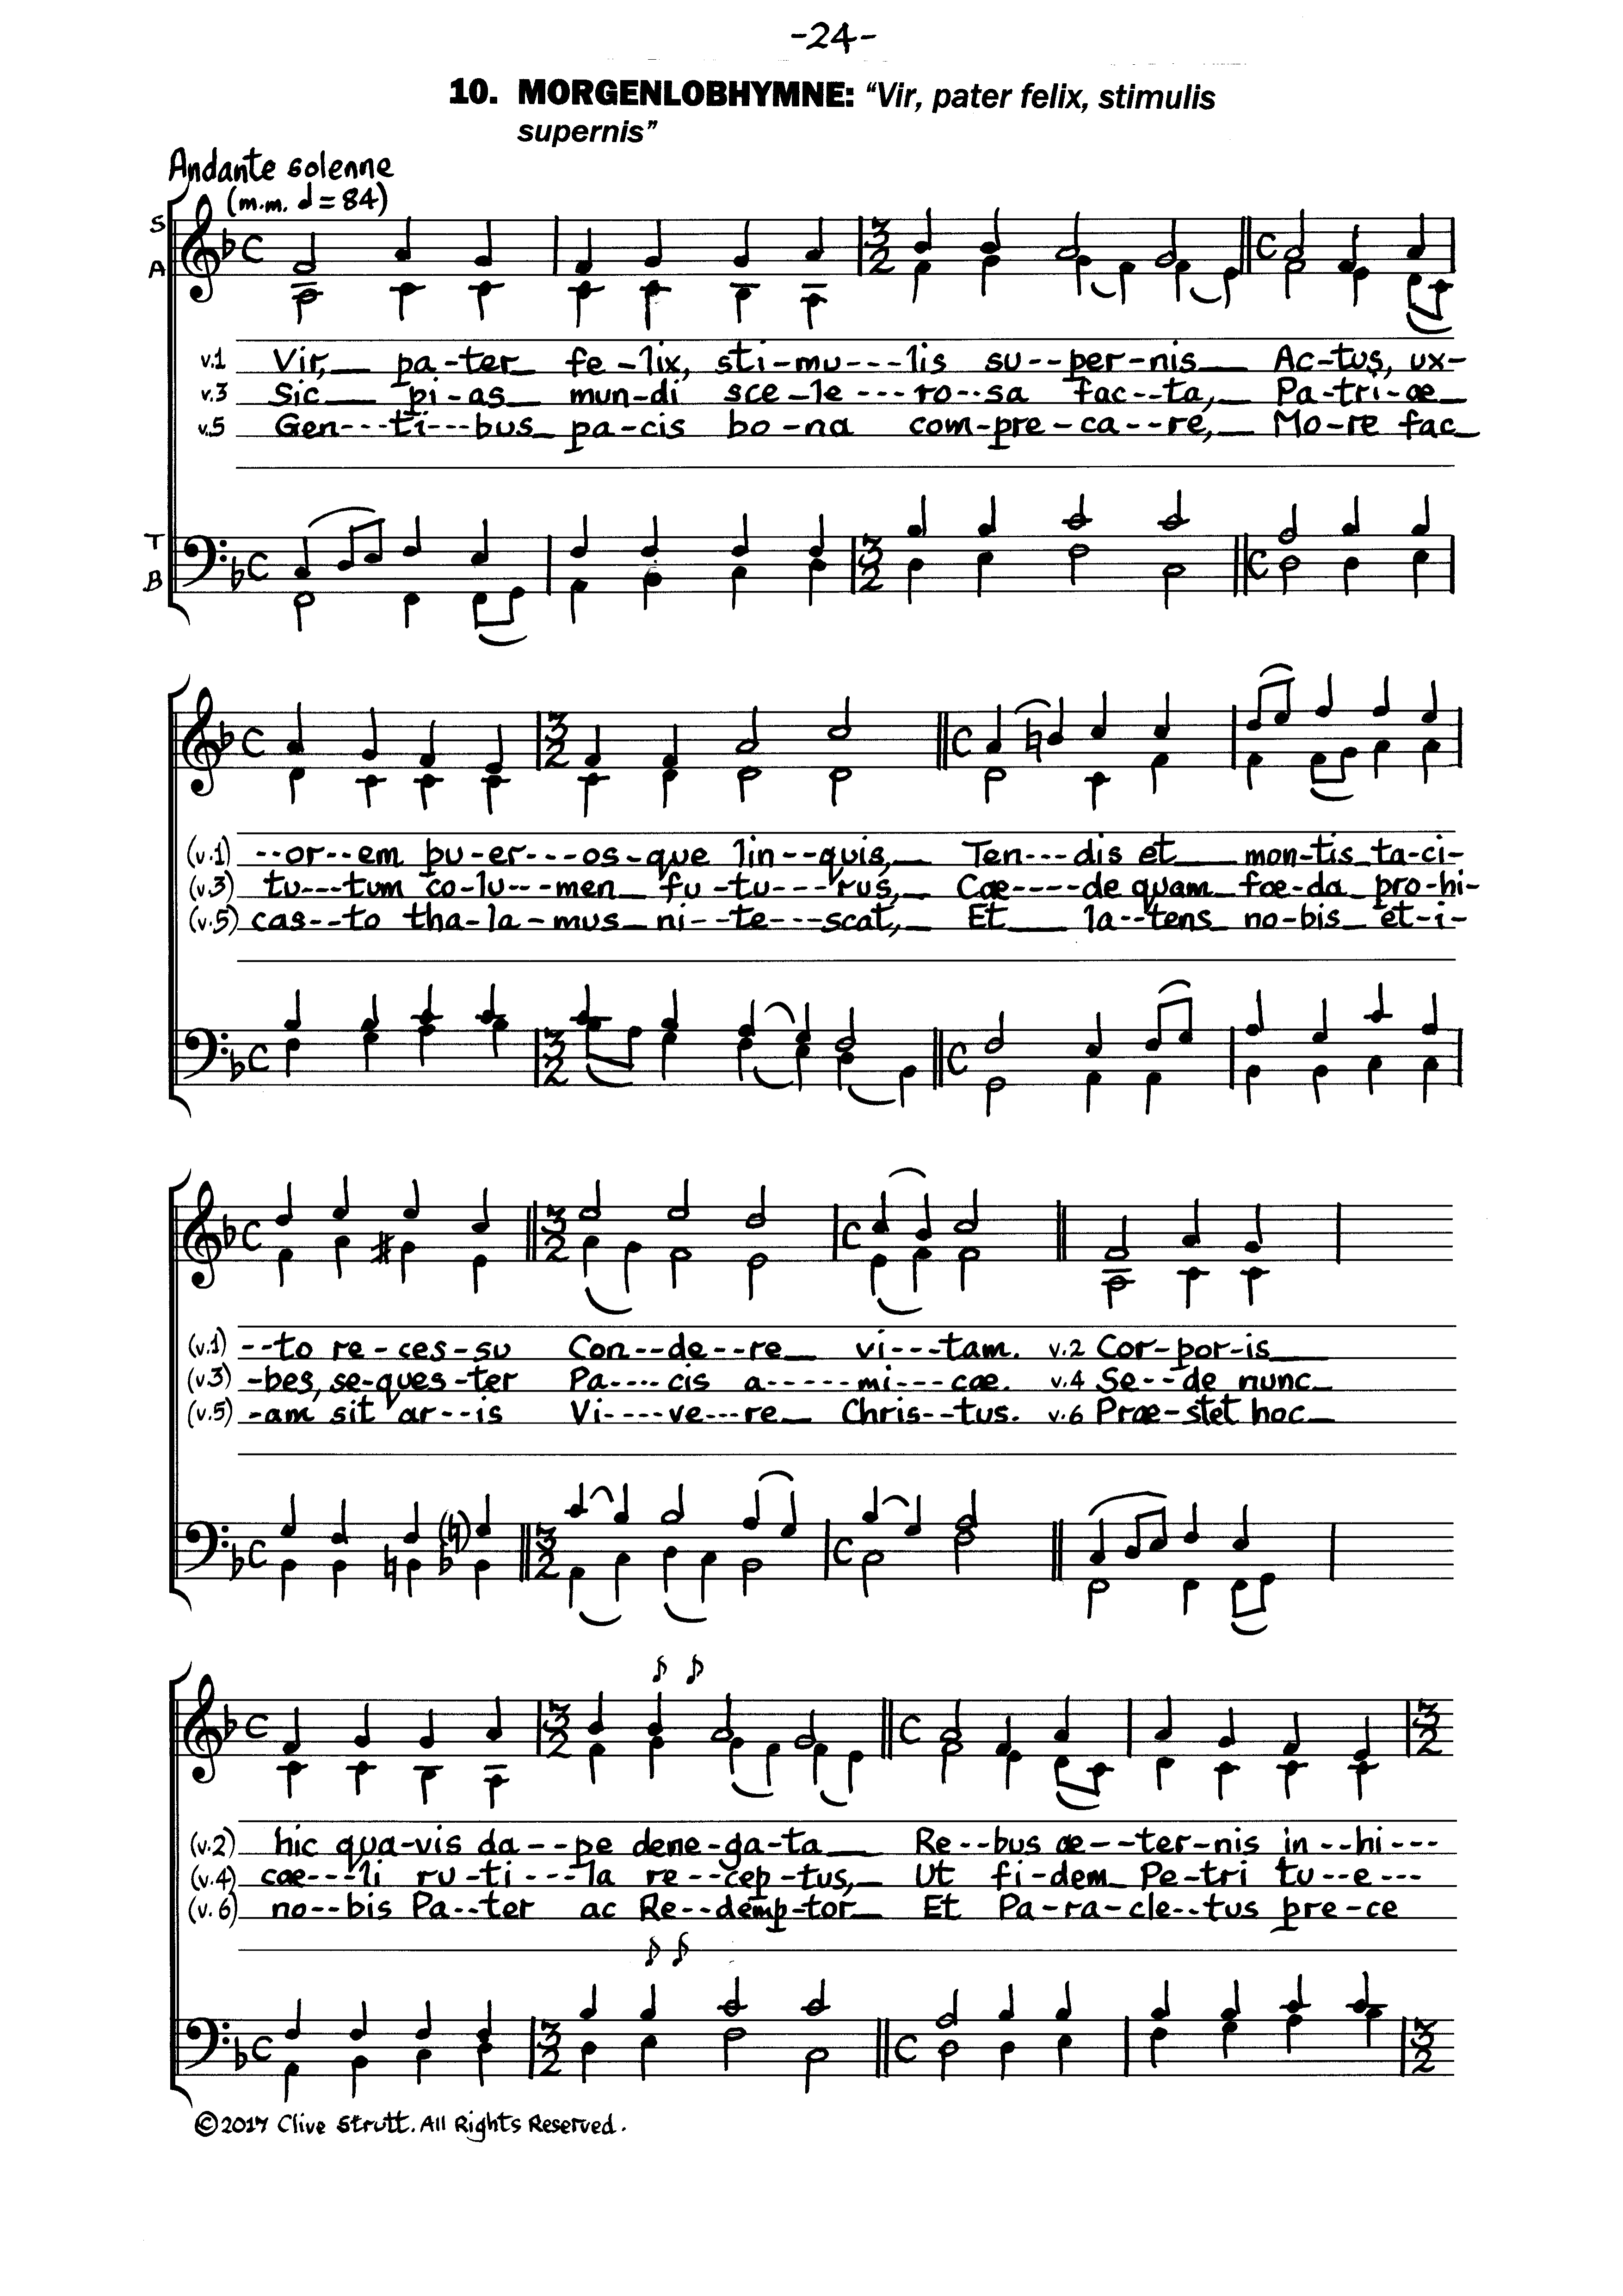 -24-
10. MORGENLOBHYMNE: “Vir, pater felix, stimulis
supernis”
Andante solenne
(m.m. 𝅗𝅥 = 84)
S
A
v.1 Vir,__ pa-ter_ fe-lix, sti-mu---lis su--per-nis__ Ac-tus, ux-
v.3 Sic__ pi-as_ mun-di sce-le---ro--sa fac--ta,_ Pa-tri-æ_
v.5 Gen---ti---bus_ pa-cis bo-na com-pre-ca--re,_ Mo-re fac_
T
B
(v.1) --or--em pu-er---os-que lin--quis,_ Ten---dis et__ mon-tis_ta-ci-
(v.3) tu---tum co-lu---men_ fu-tu---rus,_ Cæ----de quam_ foe-da pro-hi-
(v.5) cas--to tha-la-mus_ni--te---scat,_ Et__ la--tens_ no-bis_ et-i-
(v.1) --to re-ces-su Con--de--re_ vi---tam. v.2 Cor-por-is__
(v.3) -bes, se-ques-ter Pa----cis a-----mi---cæ. v.4 Se--de nunc_
(v.5) -am sit ar--is Vi----ve---re_ Chris--tus. v.6 Præ-stet hoc_
♪ ♪
(v.2) hic qua-vis da--pe dene-ga-ta__ Re--bus æ--ter-nis in--hi---
(v.4) cæ---li ru-ti---la re--cep-tus,_ Ut fi-dem_ Pe-tri tu--e---
(v.6) no--bis Pa--ter ac Re--demp-tor_ Et Pa-ra-cle--tus pre-ce
♪ ♪
©2017 Clive Strutt. All Rights Reserved.